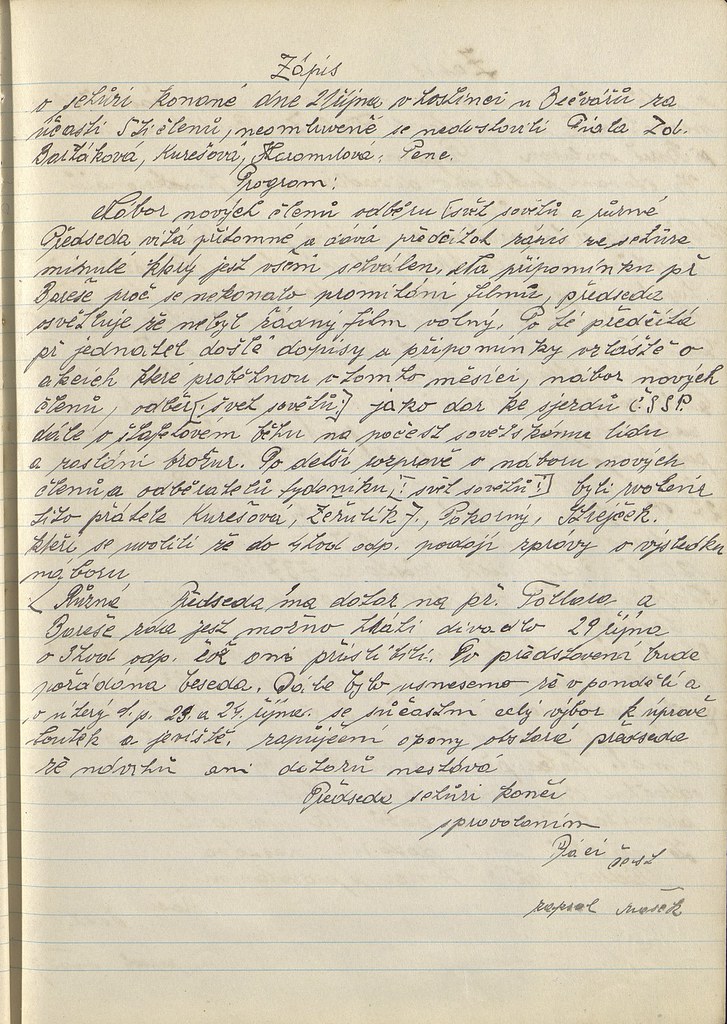 Zápis
o schůzi konané dne 21 října v hostinci u Bečvářů za
účasti 5ti členů, neomluveně se nedostavili Fiala Zd.
Bartáková, Kurešová, Haramulová, Pene.
Program:
Nábor nových členů odběru (svět sovětů a různé
Předseda vítá přítomné a dává předčítat zápis ze schůze
minulé který jest všemi schválen. Na připomínku př
Bareše proč se nekonalo promítání filmu, předseda
osvětluje že nebyl žádný film volný. Po té předčítá
př jednatel došlé dopisy a připomínky vzláště o
akcích které proběhnou v tomto měsíci, nábor nových
členů, odběr [: svět sovětů :] jako dar ke sjezdu ČSSP.
dále o štafetovém běhu na počest sovětskému lidu
a zaslání brožur. Po delší rozpravě o náboru nových
členů a odběratelů tydeniku, [: svět sovětů :] byli zvoleni
tito přátele Kurešová, Žežulík J., Pokorný, Strejček.
kteří se uvolili že do 4 hod odp. podají zprávy o výsledku
náboru
Různá Předseda má dotaz na př. Follara a
Bareše zda jest možno hráti divadlo 29 října
o 3 hod odp. což oni přislíbili. Po představená bude
pořádána beseda. Dále bylo usneseno že v pondělí a
v úterý t. j. 23. a 24. října. se súčastní celý výbor k úpravě
loutek a jeviště. zapůjčení opony obstará předseda
že návrhů ani dotazů nestává
Předseda schůzi končí
s provoláním
Práci čest
zapsal Mašek